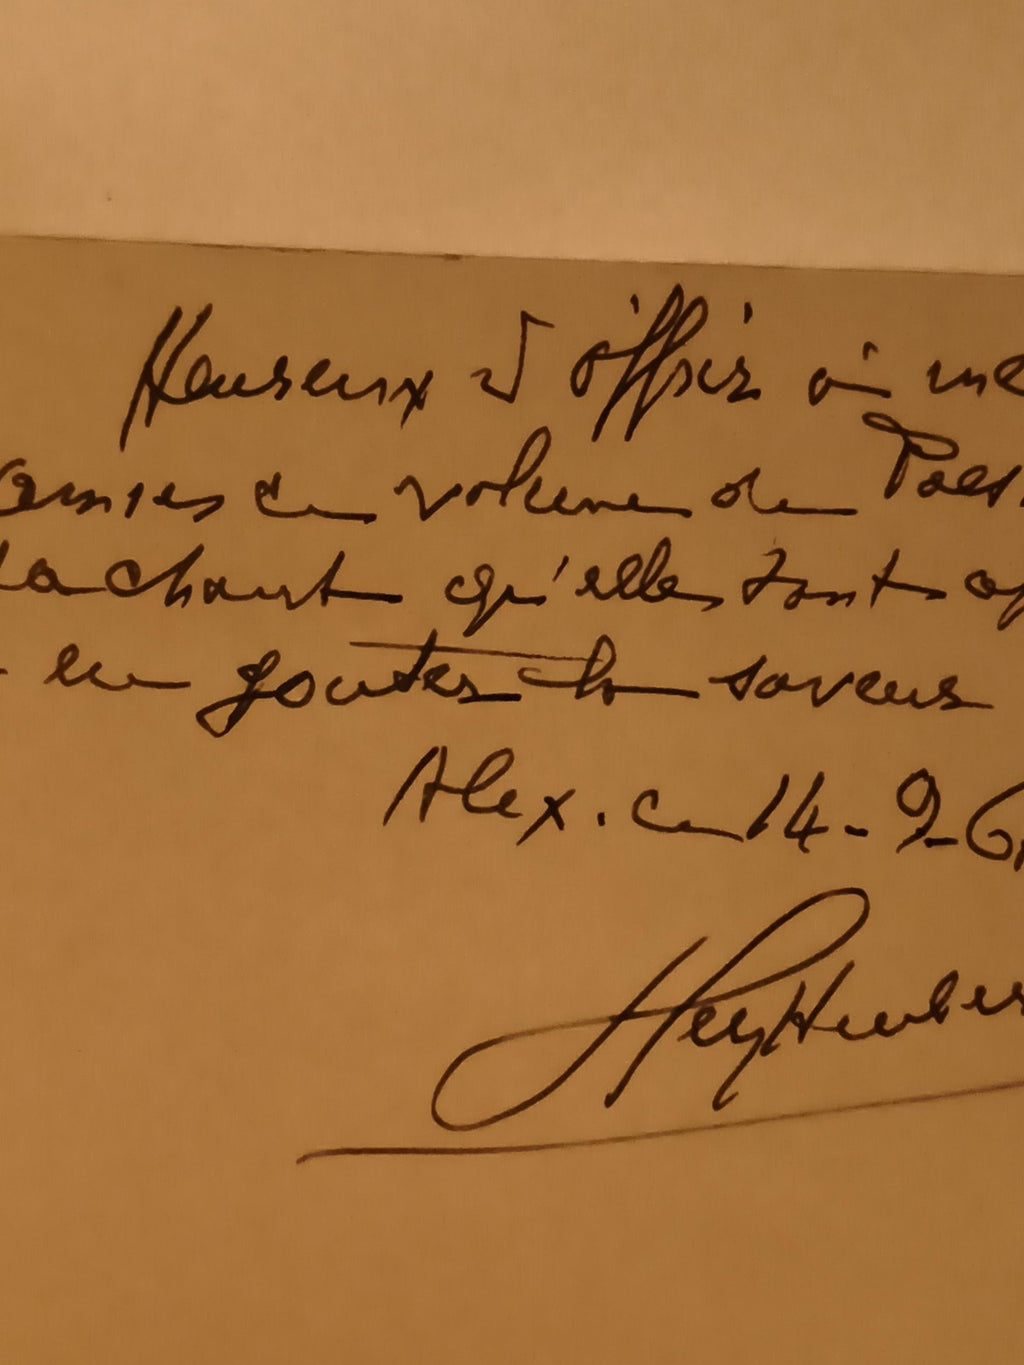 Heureux d'offrir à me
ce volume de Poés
sachant qu'elles sont
en goûter la saveur
Alex. ce 14-9-6